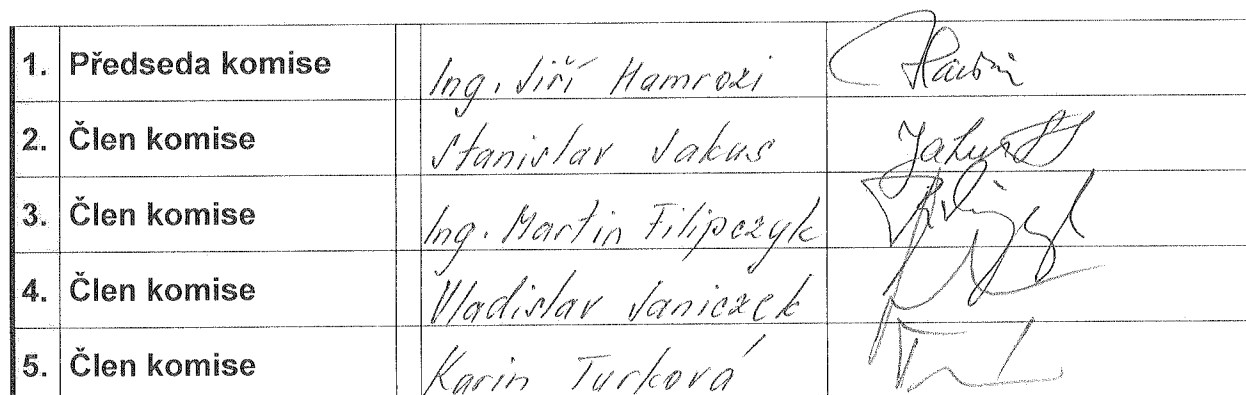 1. Předseda komise Ing. Jiří Hamrozi
2. Člen komise Stanislav Jakus Jakus
3. Člen komise Ing. Martin Filipczyk
4. Člen komise Vladislav Janiczek
5. Člen komise Karin Turková